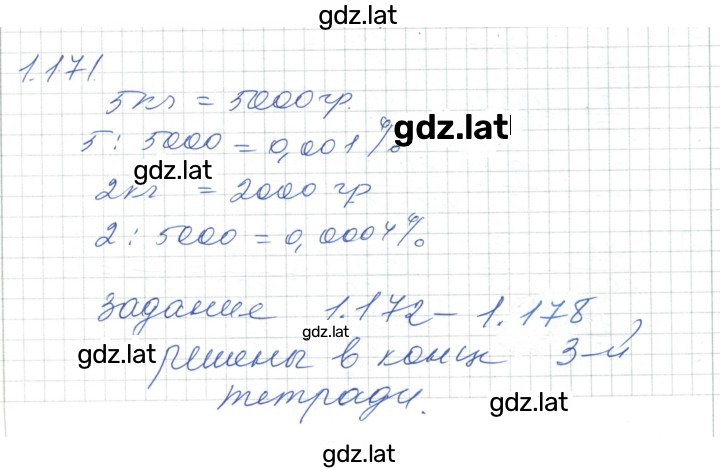 gdz.lat
1.171.
5кг = 5000гр.
5 : 5000 = 0,001 %
gdz.lat
gdz.lat
2кг = 2000 гр
2 : 5000 = 0,0004%
задание 1.172 – 1.178
gdz.lat
gdz.lat решены в конце 3-й
тетради.
gdz.lat
gdz.lat